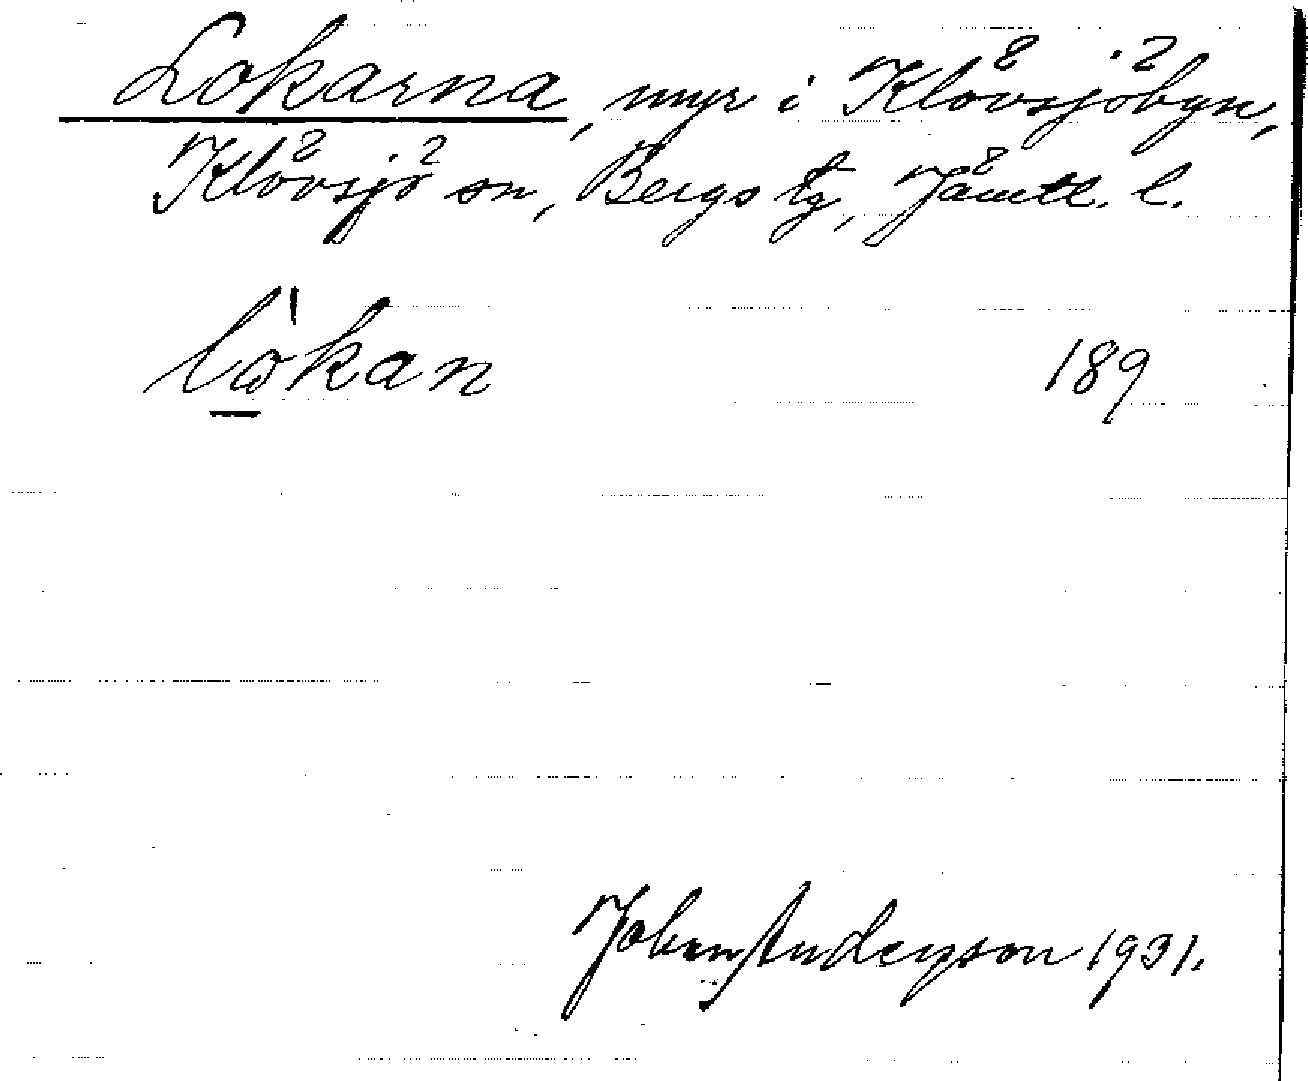 Lokarna, myr i Klövsjöbyn,
Klövsjö sn, Bergs tg, Jämtl. l.
lω̱̍kan 189
Johan Anderson 1931.